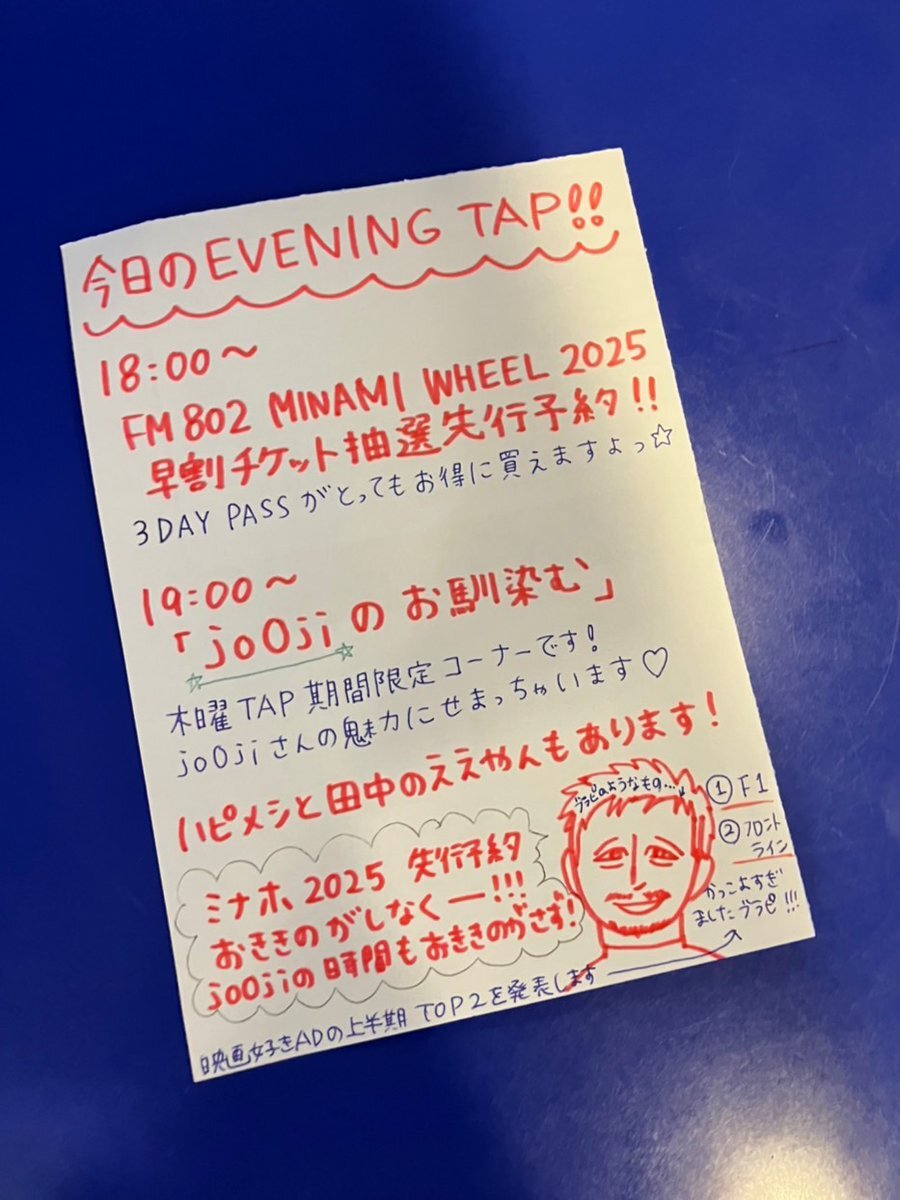 今日のEVENING TAP!!
18:00〜
FM802 MINAMI WHEEL 2025
早割チケット抽選先行予約!!
3DAY PASSがとってもお得に買えますよっ☆
19:00〜
「joOjiのお馴染む」
木曜TAP期間限定コーナーです!
joOjiさんの魅力にせまっちゃいます♡
ハピメシと田中のええやんもあります!
ブラピのようなもの…
① F1
② フロント
ライン
かっこよすぎ
ましたブラピ!!!
ミナホ2025 先行予約
おききのがしなくー!!!
joOjiの時間もおききのがさず!
映画好きADの上半期TOP2を発表します